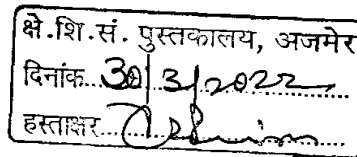 क्षे.शि.सं. पुस्तकालय, अजमेर
दिनांक...30/3/2022
हस्ताक्षर...